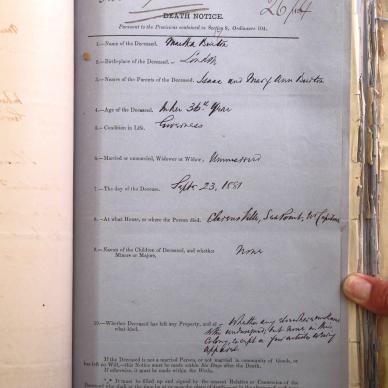 26 p4
DEATH NOTICE.
Pursuant to the Provisions contained in Section 8, Ordinance 104.
1.—Name of the Deceased. Martha Buxton
2.—Birth-place of the Deceased.— London
3.—Names of the Parents of the Deceased. Isaac and Mary Ann Buxton
4.—Age of the Deceased. In her 36th Year
5.—Condition in Life. Governess
6.—Married or unmarried, Widower or Widow. Unmarried
7.—The day of the Decease. Septr 23, 1881
8.—At what House, or where the Person died. Clarens Ville, Sea Point, Nr Capetown
9.—Names of the Children of Deceased, and whether
Minors or Majors.
None
10.—Whether Deceased has left any Property, and of
what kind.
Whether any elsewhere
the undersigned, but none in this
Colony, except a few articles of wearing
apparel
If the Deceased is not a married Person, or not married in community of Goods, or
has left no Will,—this Notice must be made within Six Days after the Death.
If otherwise, it must be made within Six Weeks.
It must be filled up and signed by the nearest Relative or Connexion of the